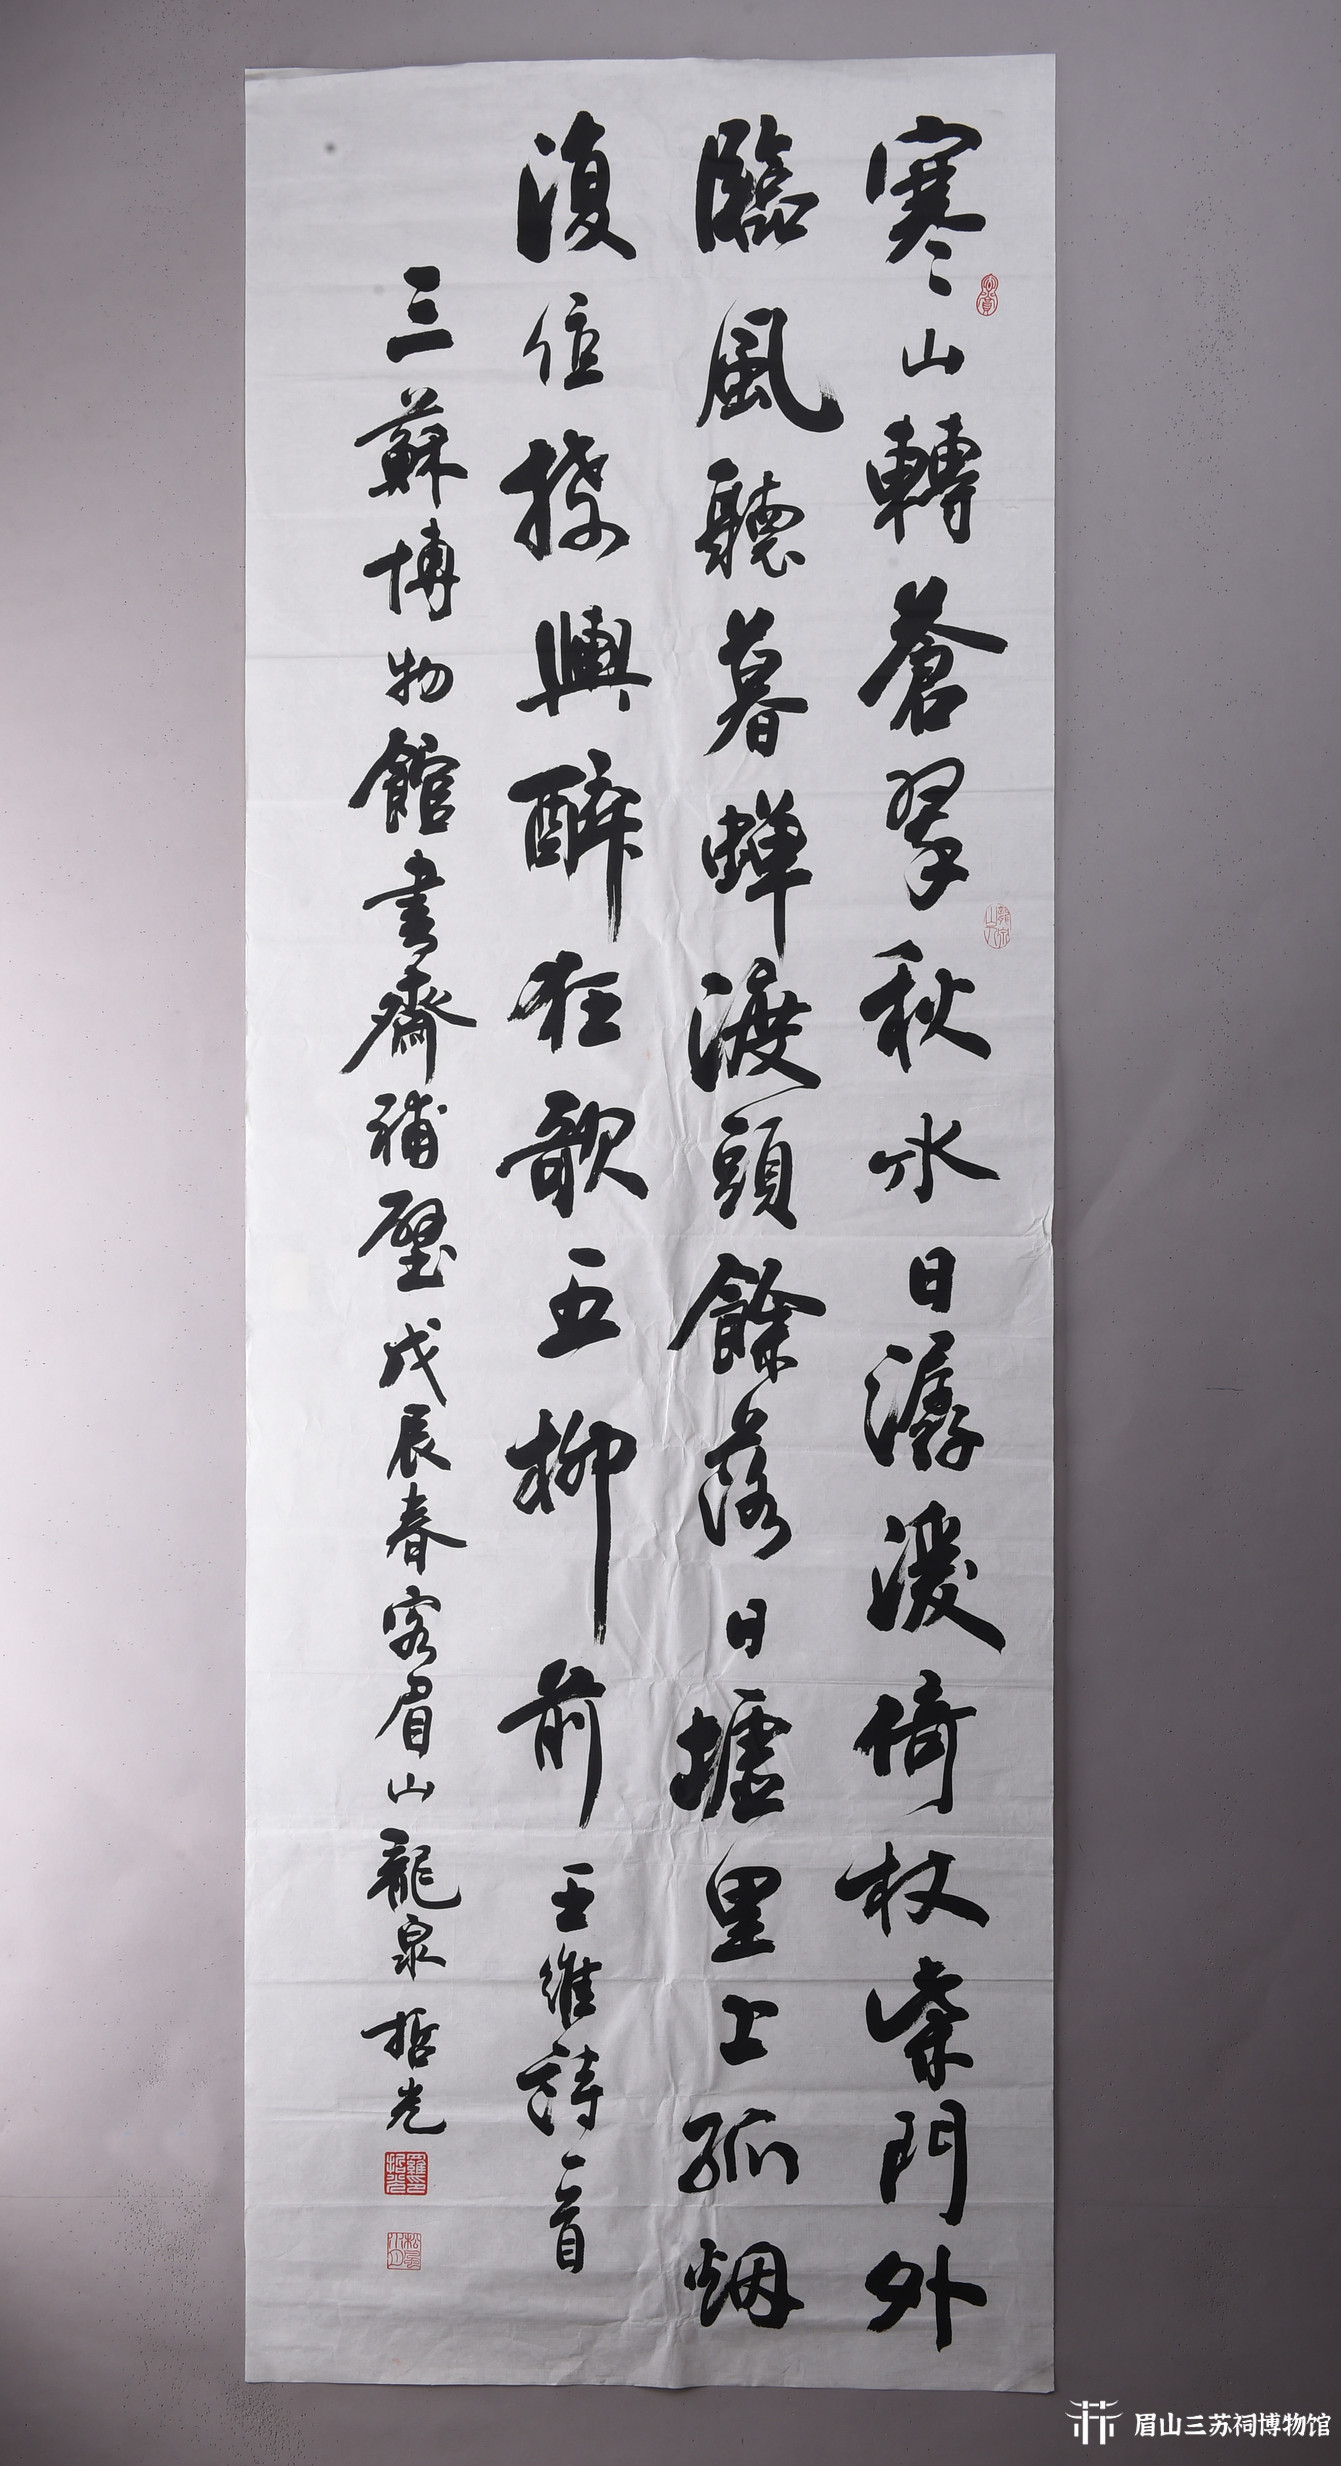 寒山轉蒼翠秋水日潺湲倚杖柴門外
臨風聽暮蟬渡頭餘落日墟里上孤烟
復值接輿醉狂歌五柳前王維詩一首
三蘇博物館書齋補壁戊辰春客眉山龍泉哲光
羅哲光印
眉山三苏祠博物馆